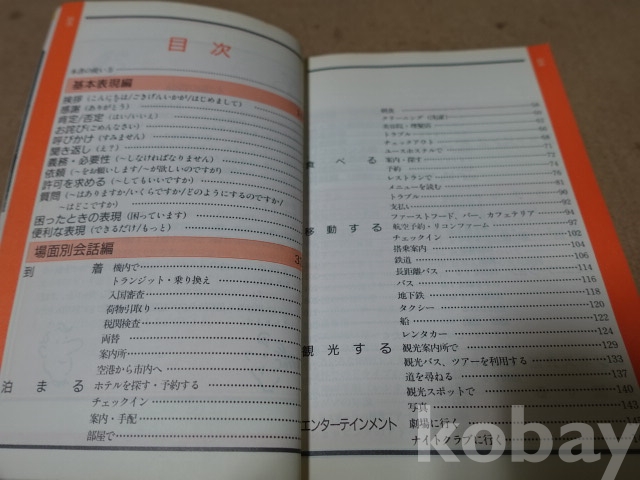 目次
本書の使い方
基本表現編
挨拶(こんにちは/ごきげんいかが/はじめまして)
感謝(ありがとう)
肯定/否定(はい/いいえ)
お詫び(ごめんなさい)
呼びかけ(すみません)
聞き返し(え?)
義務・必要性(〜しなければなりません)
依頼(〜をお願いします/〜が欲しいのですが)
許可を求める(〜してもいいですか)
質問(〜はありますか/いくらですか/どのようにするのですか/
〜はどこですか)
困ったときの表現(困っています)
便利な表現(できるだけ/もっと)
場面別会話編
到着 機内で
トランジット・乗り換え
入国審査
荷物引取り
税関検査
両替
案内所
空港から市内へ
泊まる ホテルを探す・予約する
チェックイン
案内・手配
部屋で
クリーニング(洗濯)
美容院・理髪店
トラブル
チェックアウト
ユースホステルで 71
食べる 案内・探す 72
予約 74
レストランで 77
メニューを読む
トラブル
支払い
ファーストフード、バー、カフェテリア 94
移動する 航空予約・リコンファーム
チェックイン 102
搭乗案内 106
鉄道
長距離バス 114
バス 116
地下鉄 118
タクシー 120
船 122
レンタカー 124
観光する 観光案内所で 129
観光バス、ツアーを利用する 133
道を尋ねる 137
観光スポットで 140
写真
エンターテインメント 劇場に行く
ナイトクラブに行く
kobay